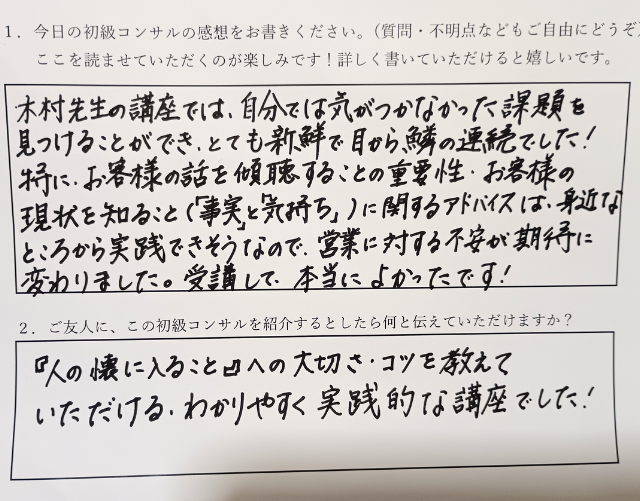 1．今日の初級コンサルの感想をお書きください。（質問・不明点などもご自由にどうぞ）
ここを読ませていただくのが楽しみです！詳しく書いていただけると嬉しいです。
木村先生の講座では、自分では気がつかなかった課題を
見つけることができ、とても新鮮で目から鱗の連続でした！
特に、お客様の話を傾聴することの重要性・お客様の
現状を知ること（「事実」と「気持ち」）に関するアドバイスは、身近な
ところから実践できそうなので、営業に対する不安が期待に
変わりました。受講して、本当によかったです！
2．ご友人に、この初級コンサルを紹介するとしたら何と伝えていただけますか？
『人の懐に入ること』への大切さ・コツを教えて
いただける、わかりやすく実践的な講座でした！